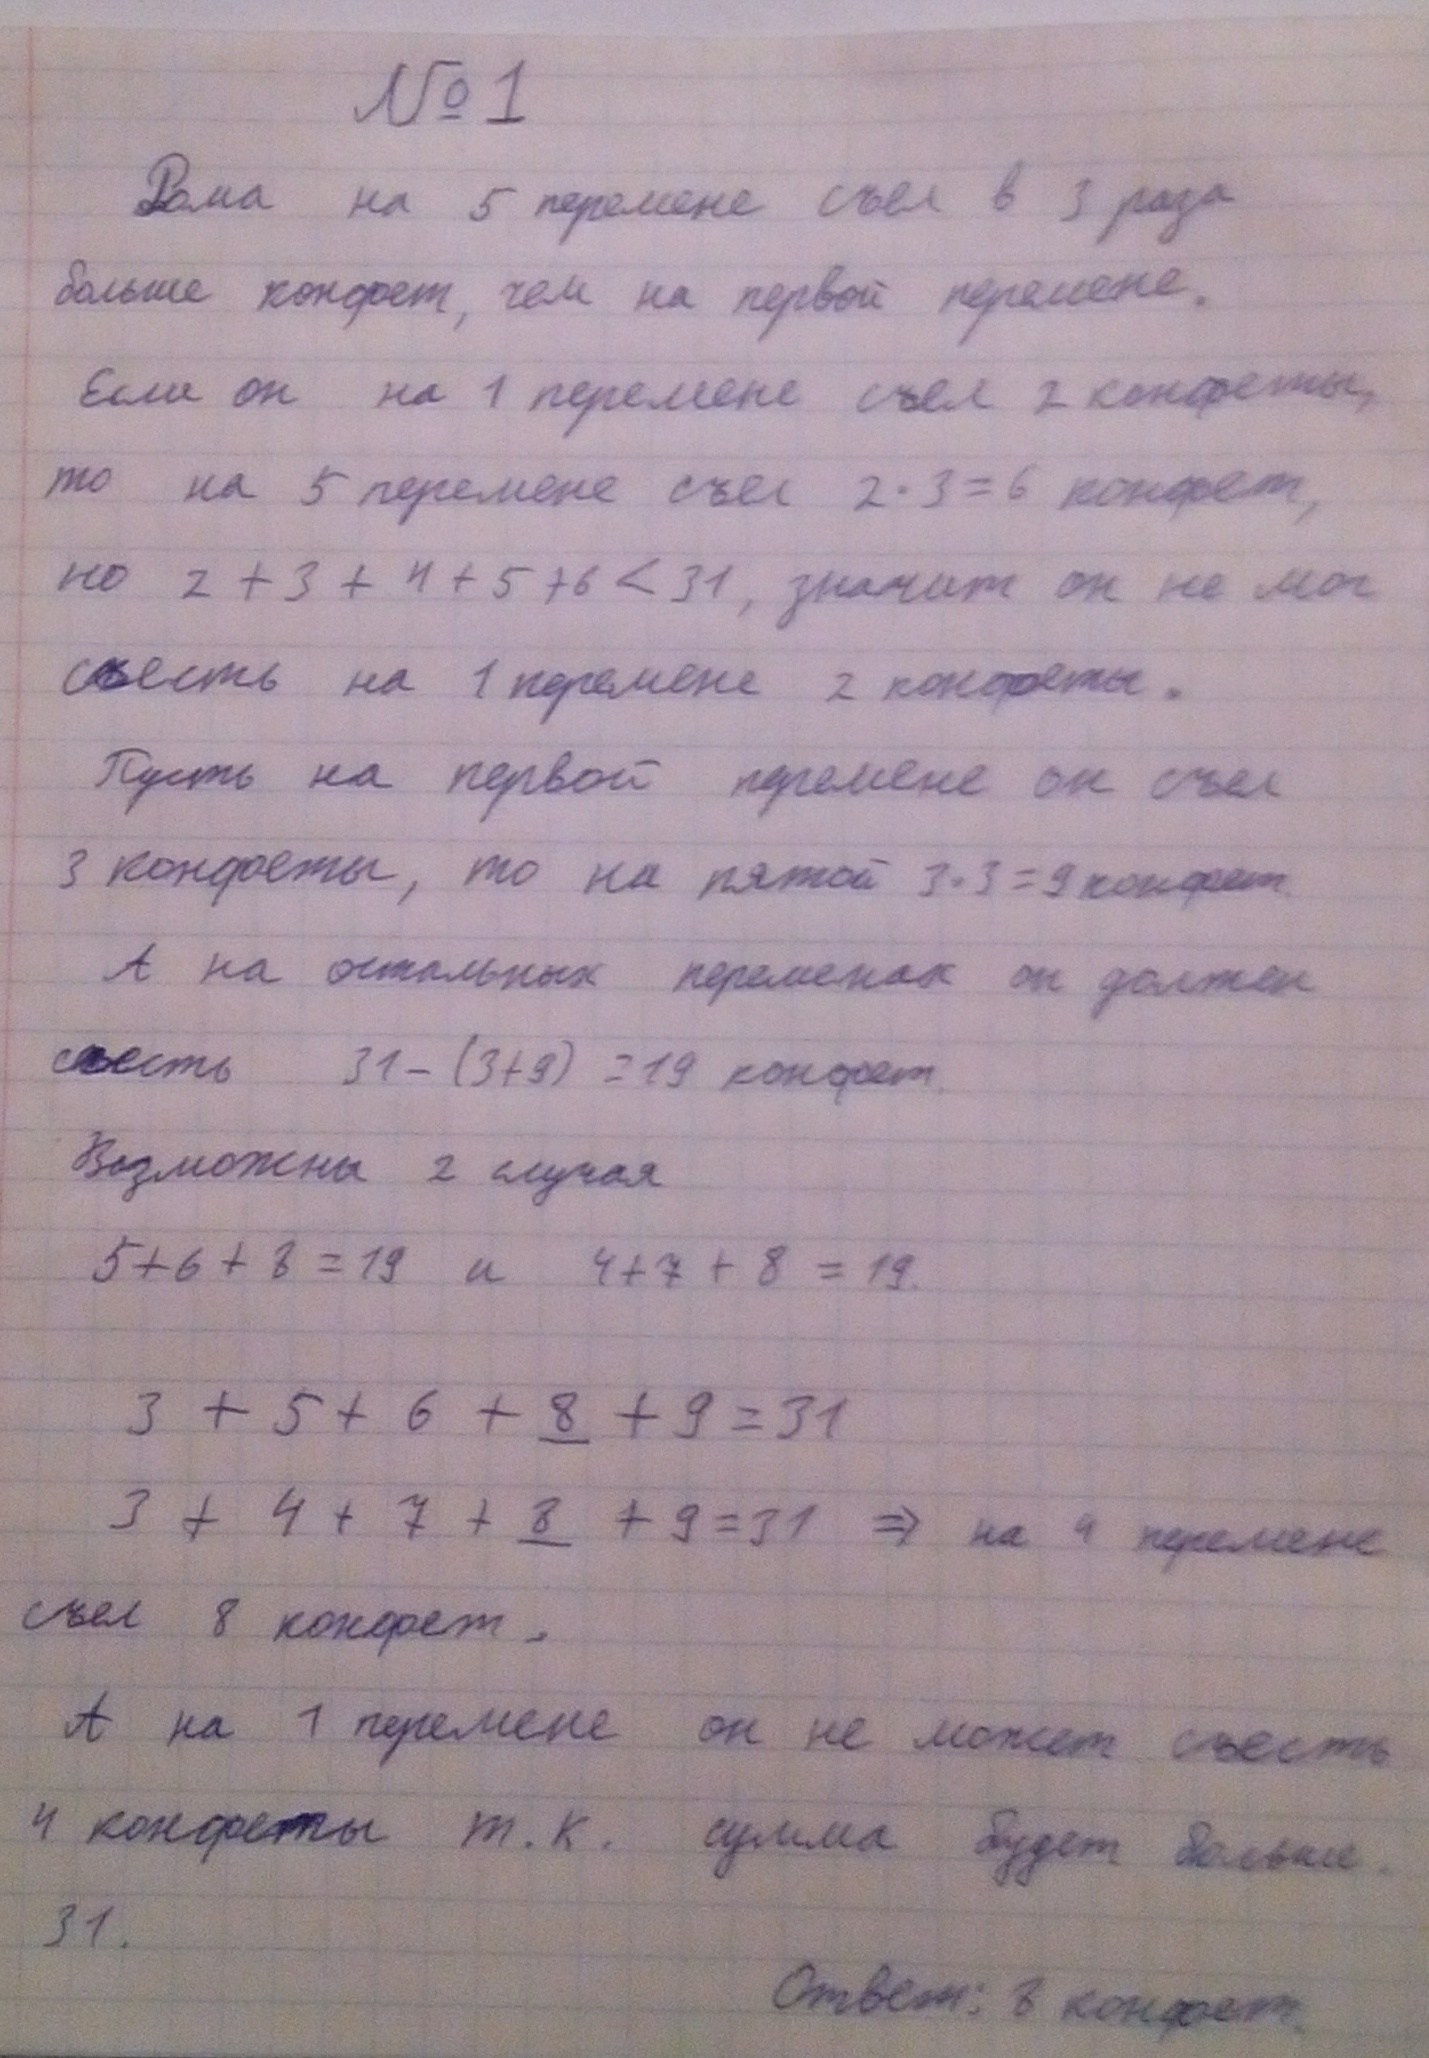 №1
Рома на 5 перемене съел в 3 раза
больше конфет, чем на первой перемене.
Если он на 1 перемене съел 2 конфеты,
то на 5 перемене съел 2·3=6 конфет,
но 2+3+4+5+6<31, значит он не мог
съесть на 1 перемене 2 конфеты.
Пусть на первой перемене он съел
3 конфеты, то на пятой 3·3=9 конфет.
А на остальных переменах он должен
съесть 31-(3+9)=19 конфет.
Возможны 2 случая
5+6+8=19 и 4+7+8=19.
3+5+6+8+9=31
3+4+7+8+9=31 ⇒ на 4 перемене
съел 8 конфет.
А на 1 перемене он не может съесть
4 конфеты т.к. сумма будет больше
31.
Ответ: 8 конфет.